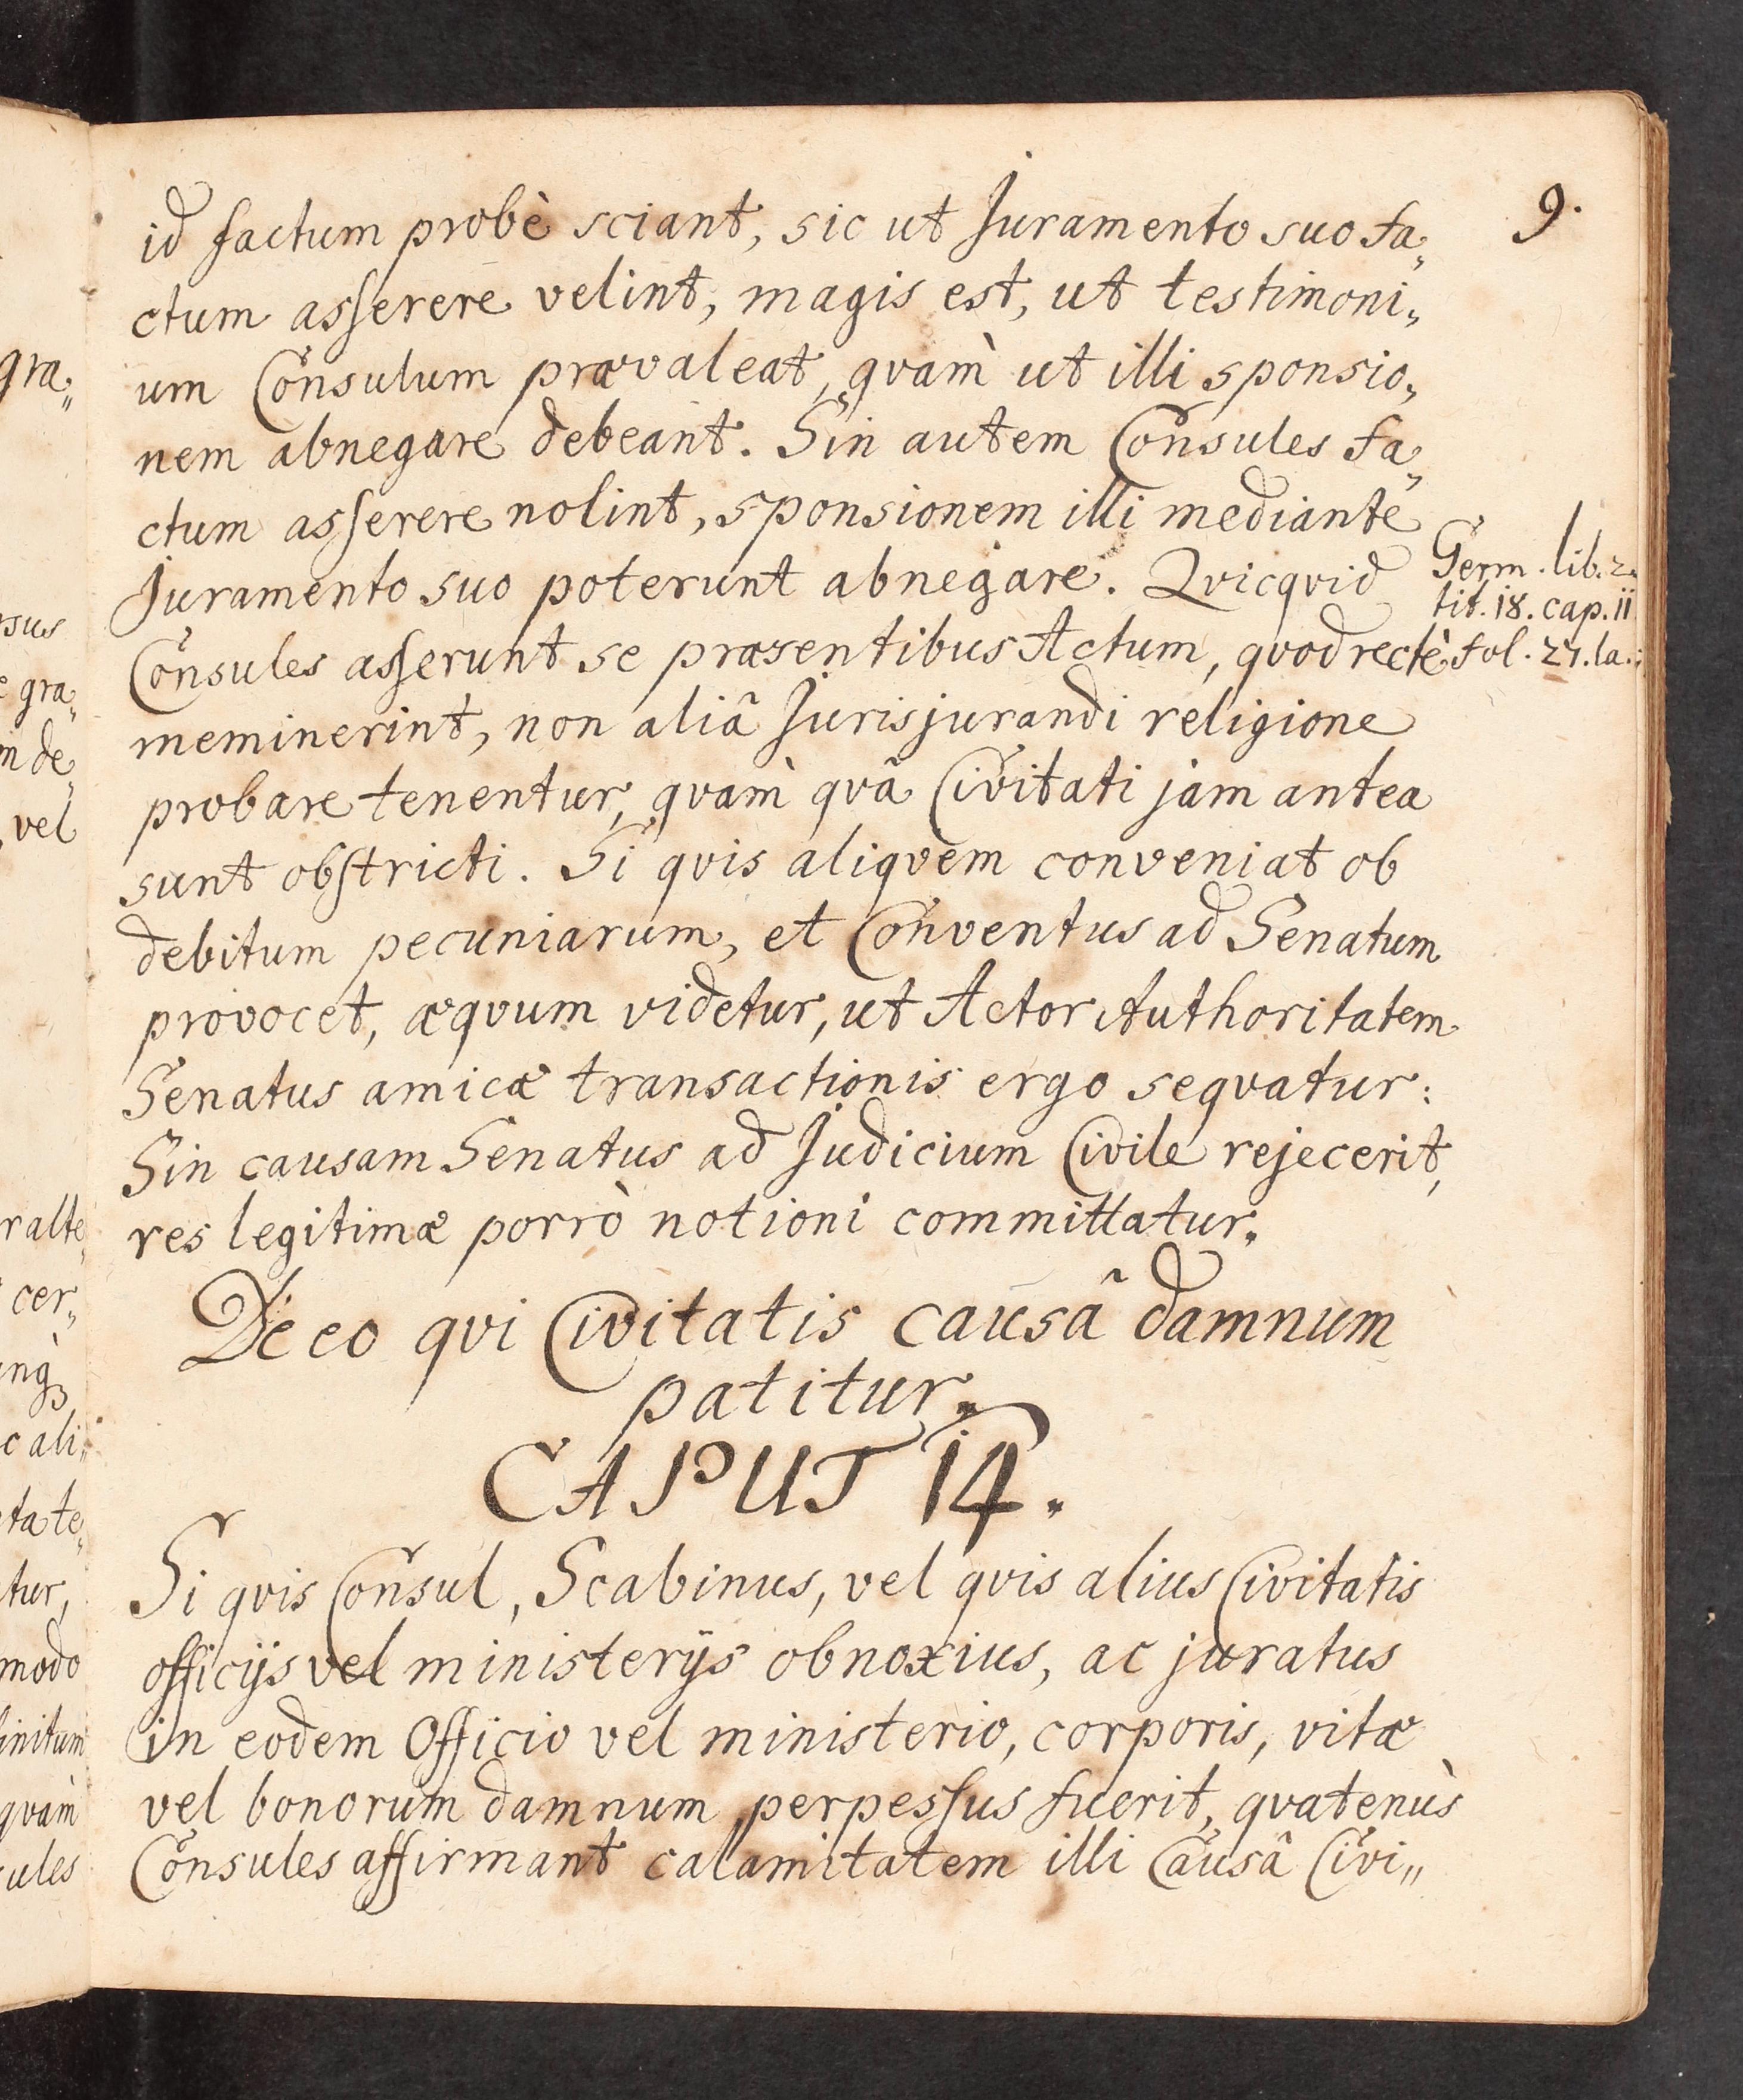 9.
id factum probè sciant, sic ut Juramento suo fa„
ctum asserere velint, magis est, ut testimoni„
um Consulum prævaleat, qvam̀ ut illi sponsio„
nem abnegare debeant. Sin autem Consules fa„
ctum asserere nolint, sponsionem illi mediante
Juramento suo poterunt abnegare. Qvicqvid
Consules asserunt se præsentibus Actum, qvod rectè
meminerint, non aliâ Jurisjurandi religione
probare tenentur, qvam̀ qvâ Civitati jam antea
sunt obstricti. Si qvis aliqvem conveniat ob
debitum pecuniarum, et Conventus ad Senatum
provocet, æqvum videtur, ut Actor Authoritatem
Senatus amicæ transactionis ergo seqvatur:
Sin causam Senatus ad Judicium Civile rejecerit,
res legitimæ porrò notioni committatur.
Germ. lib. 2.
tit. 18. cap. ii
fol. 27. la.
De eo qvi Civitatis causâ damnum
patitur.
CAPUT 14.
Si qvis Consul, Scabinus, vel qvis alius Civitatis
officijs vel ministerijs obnoxius, ac juratus
in eodem Officio vel ministerio, corporis, vitæ
vel bonorum damnum perpessus fuerit, qvatenùs
Consules affirmant calamitatem illi Causâ Civi„
gra„
sus
gra„
de„
vel
alte„
cer„
ali„
tate„
tur,
modo
initum
qvam̀
ules